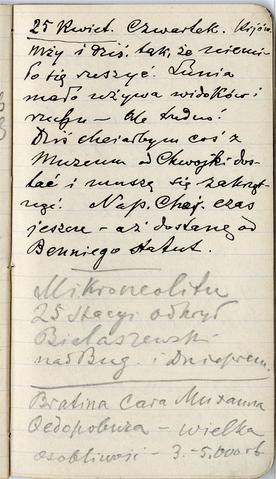 25 Kwiet. Czwartek. Kijów.
Mży i dziś tak, że niemi-
ło się ruszyć. Lunia
mało używa widoków i
ruchu – ale trudno!
Dziś chciałbym coś z
Muzeum od Chwojki dos-
tać i muszę się zakrząt-
nąć. Nap. Chęj. czas
jeszcze – aż dostanę od
Benniego statut.
Mikroneolitu
25 stacyi odkrył
Bielaszewski
nad Bug. i Dnieprem.
Bratina Cara Михаила
Ѳедоровича – wielka
osobliwość – 3.–5.000 rb.